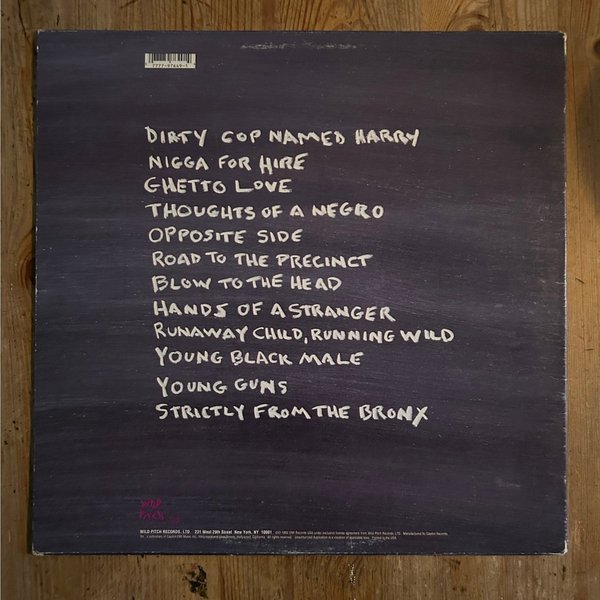 7777-97649-1
DIRTY COP NAMED HARRY
NIGGA FOR HIRE
GHETTO LOVE
THOUGHTS OF A NEGRO
OPPOSITE SIDE
ROAD TO THE PRECINCT
BLOW TO THE HEAD
HANDS OF A STRANGER
RUNAWAY CHILD, RUNNING WILD
YOUNG BLACK MALE
YOUNG GUNS
STRICTLY FROM THE BRONX
Wild
Pitch
WILD PITCH RECORDS, LTD. 231 West 29th Street New York, NY 10001